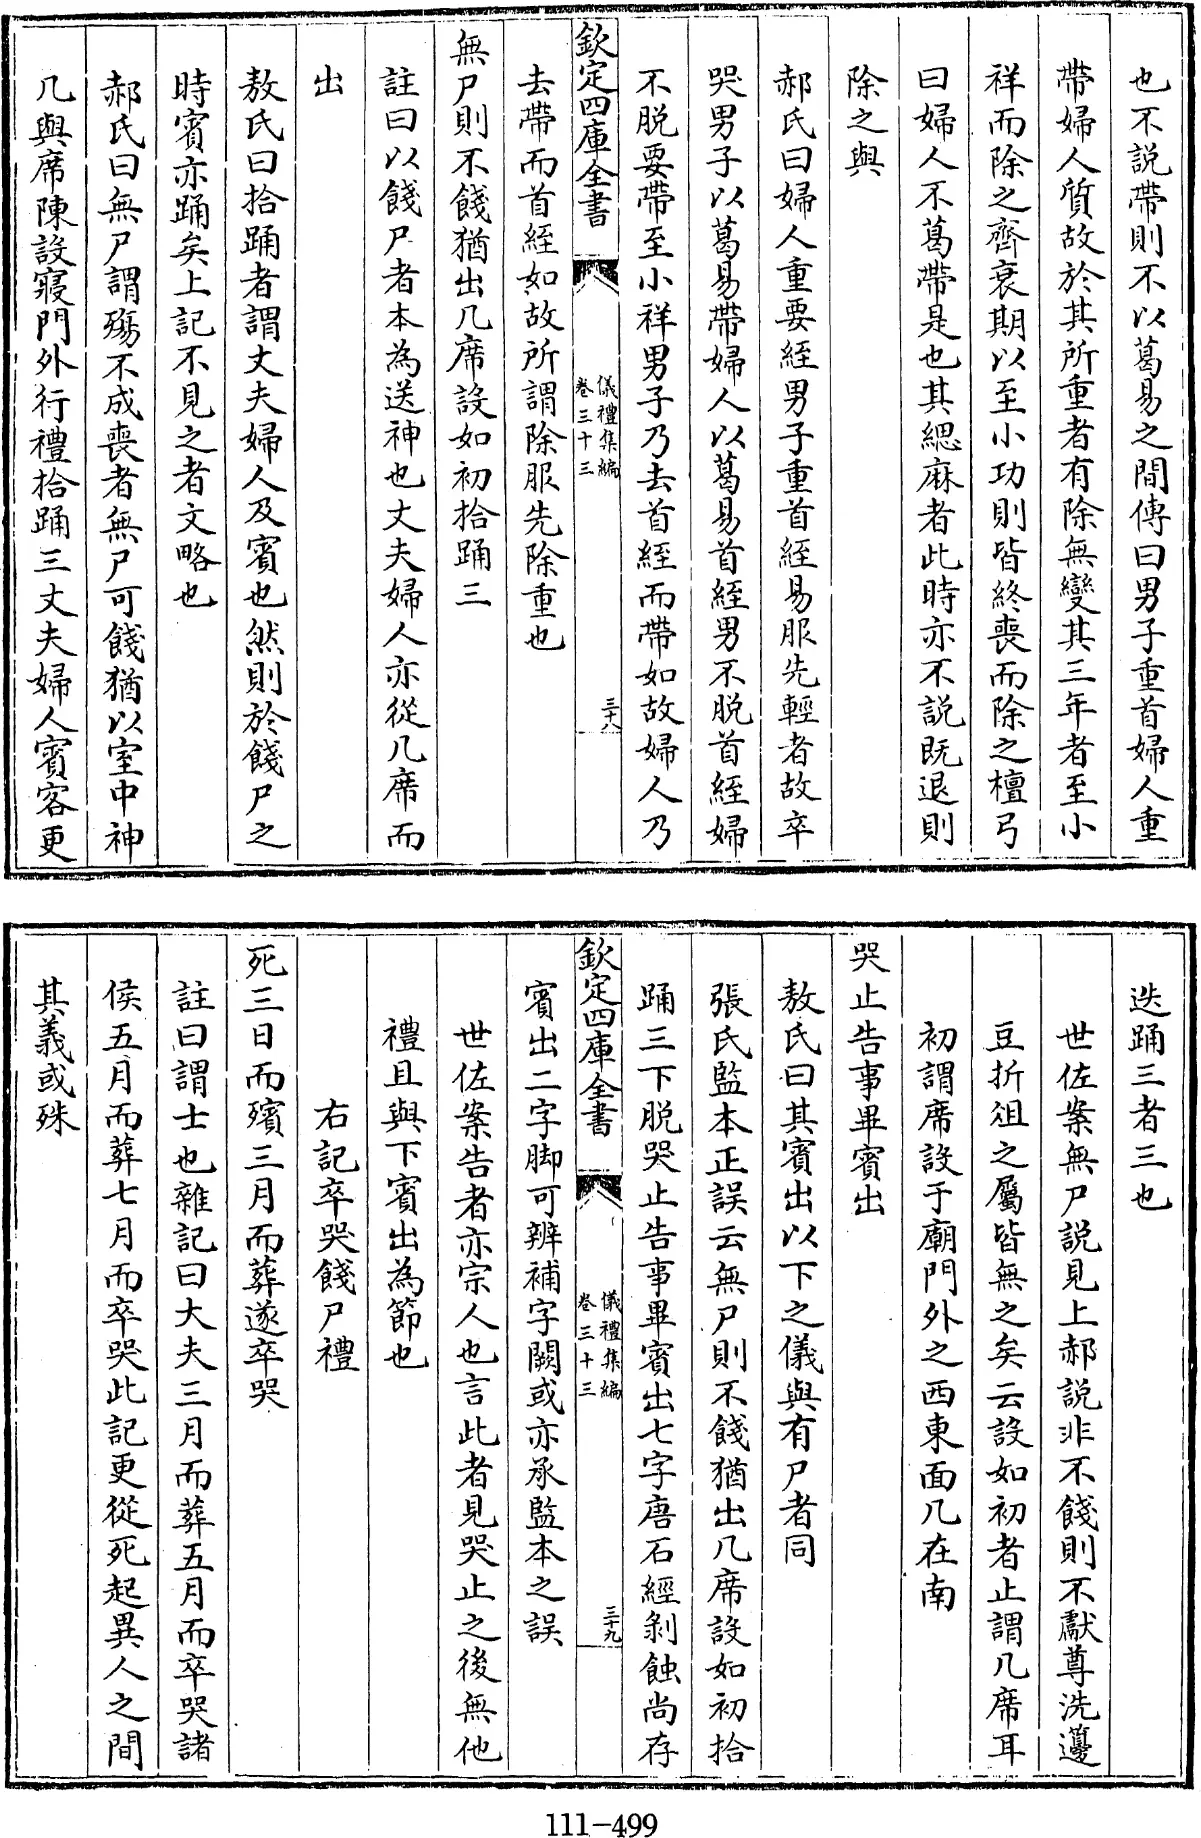 也不說帶則不以葛易之間傳曰男子重首婦人重
帶婦人質故於其所重者有除無變其三年者至小
祥而除之齊衰期以至小功則皆終喪而除之檀弓
曰婦人不葛帶是也其緦麻者此時亦不說既退則
除之與
郝氏曰婦人重要絰男子重首絰易服先輕者故卒
哭男子以葛易帶婦人以葛易首絰男不脫首絰婦
不脫要帶至小祥男子乃去首絰而帶如故婦人乃
欽定四庫全書
儀禮集編
卷三十三
三十八
去帶而首絰如故所謂除服先除重也
無尸則不餞猶出几席設如初拾踊三
註曰以餞尸者本為送神也丈夫婦人亦從几席而
出
敖氏曰拾踊者謂丈夫婦人及賓也然則於餞尸之
時賓亦踊矣上記不見之者文略也
郝氏曰無尸謂殤不成喪者無尸可餞猶以室中神
几與席陳設寢門外行禮拾踊三丈夫婦人賓客更
迭踊三者三也
世佐案無尸說見上郝說非不餞則不獻尊洗籩
豆折俎之屬皆無之矣云設如初者止謂几席耳
初謂席設于廟門外之西東面几在南
哭止告事畢賓出
敖氏曰其賓出以下之儀與有尸者同
張氏監本正誤云無尸則不餞猶出几席設如初拾
踊三下脫哭止告事畢賓出七字唐石經剝蝕尚存
欽定四庫全書
儀禮集編
卷三十三
三十九
賓出二字脚可辨補字闕或亦承監本之誤
世佐案告者亦宗人也言此者見哭止之後無他
禮且與下賓出為節也
右記卒哭餞尸禮
死三日而殯三月而葬遂卒哭
註曰謂士也雜記曰大夫三月而葬五月而卒哭諸
侯五月而葬七月而卒哭此記更從死起異人之間
其義或殊
111-499